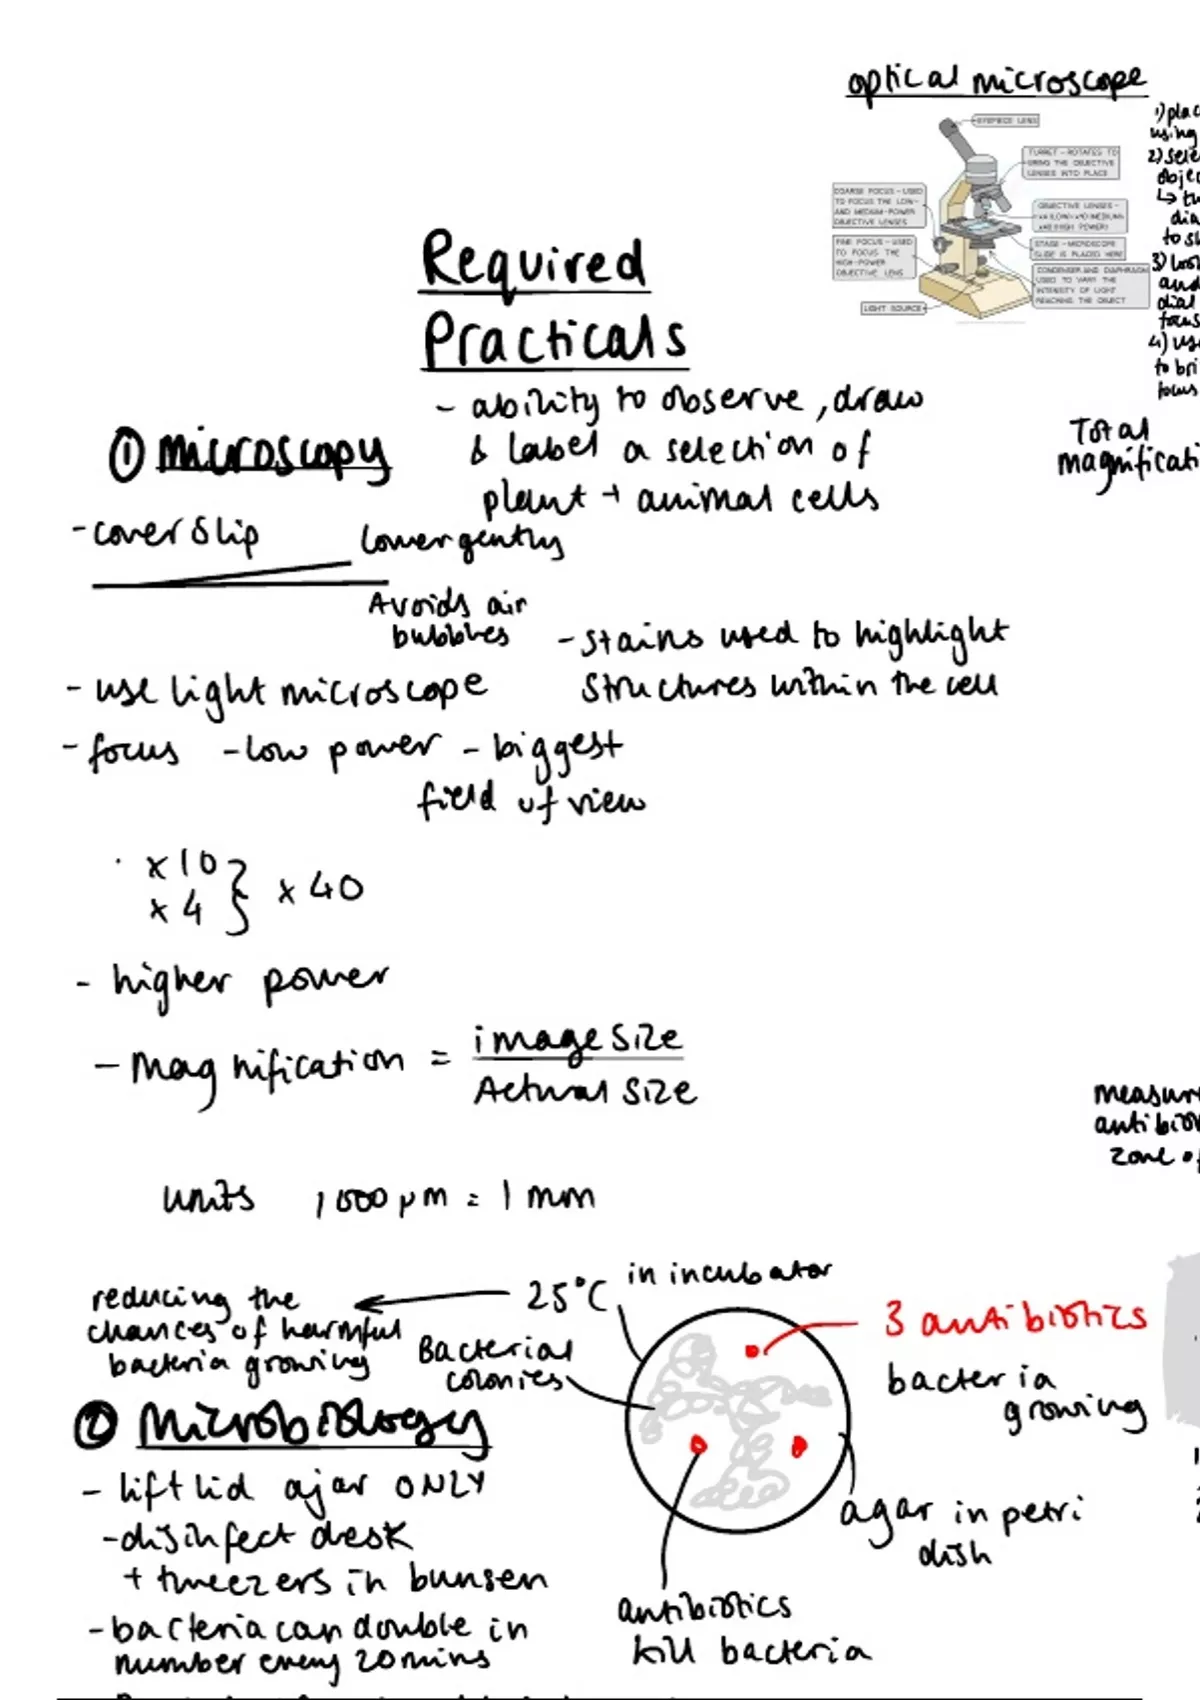 optical microscope
EYEPIECE LENS
TURRET - ROTATES TO
BRING THE OBJECTIVE
LENSES INTO PLACE
COARSE FOCUS - USED
TO FOCUS THE LOW-
AND MEDIUM-POWER
OBJECTIVE LENSES
OBJECTIVE LENSES -
STAGE - MICROSCOPE
SLIDE IS PLACED HERE
FINE FOCUS - USED
TO FOCUS THE
HIGH-POWER
OBJECTIVE LENS
CONDENSER AND DIAPHRAGM
USED TO VARY THE
INTENSITY OF LIGHT
REACHING THE OBJECT
LIGHT SOURCE
1) plac
using
2) sele
objec
↳ tu
dia
to sl
3) look
and
dial
focus
4) use
to bri
focus
Total
magnificati
Required
Practicals
- ability to observe, draw
& label a selection of
plant + animal cells
① microscopy
- cover slip
lower gently
Avoids air
bubbles
- stains used to highlight
structures within the cell
- use light microscope
- focus - low power - biggest
field of view
x10
x4 } x 40
- higher power
- Magnification = image size
Actual size
units 1000 µm = 1 mm
measure
antibio
zone of
reducing the
chances of harmful
bacteria growing
25°C
in incubator
Bacterial
colonies
3 antibiotics
bacteria
growing
② Microbiology
- lift lid ajar ONLY
- disinfect desk
+ tweezers in bunsen
- bacteria can double in
number every 20 mins
agar in petri
dish
antibiotics
kill bacteria